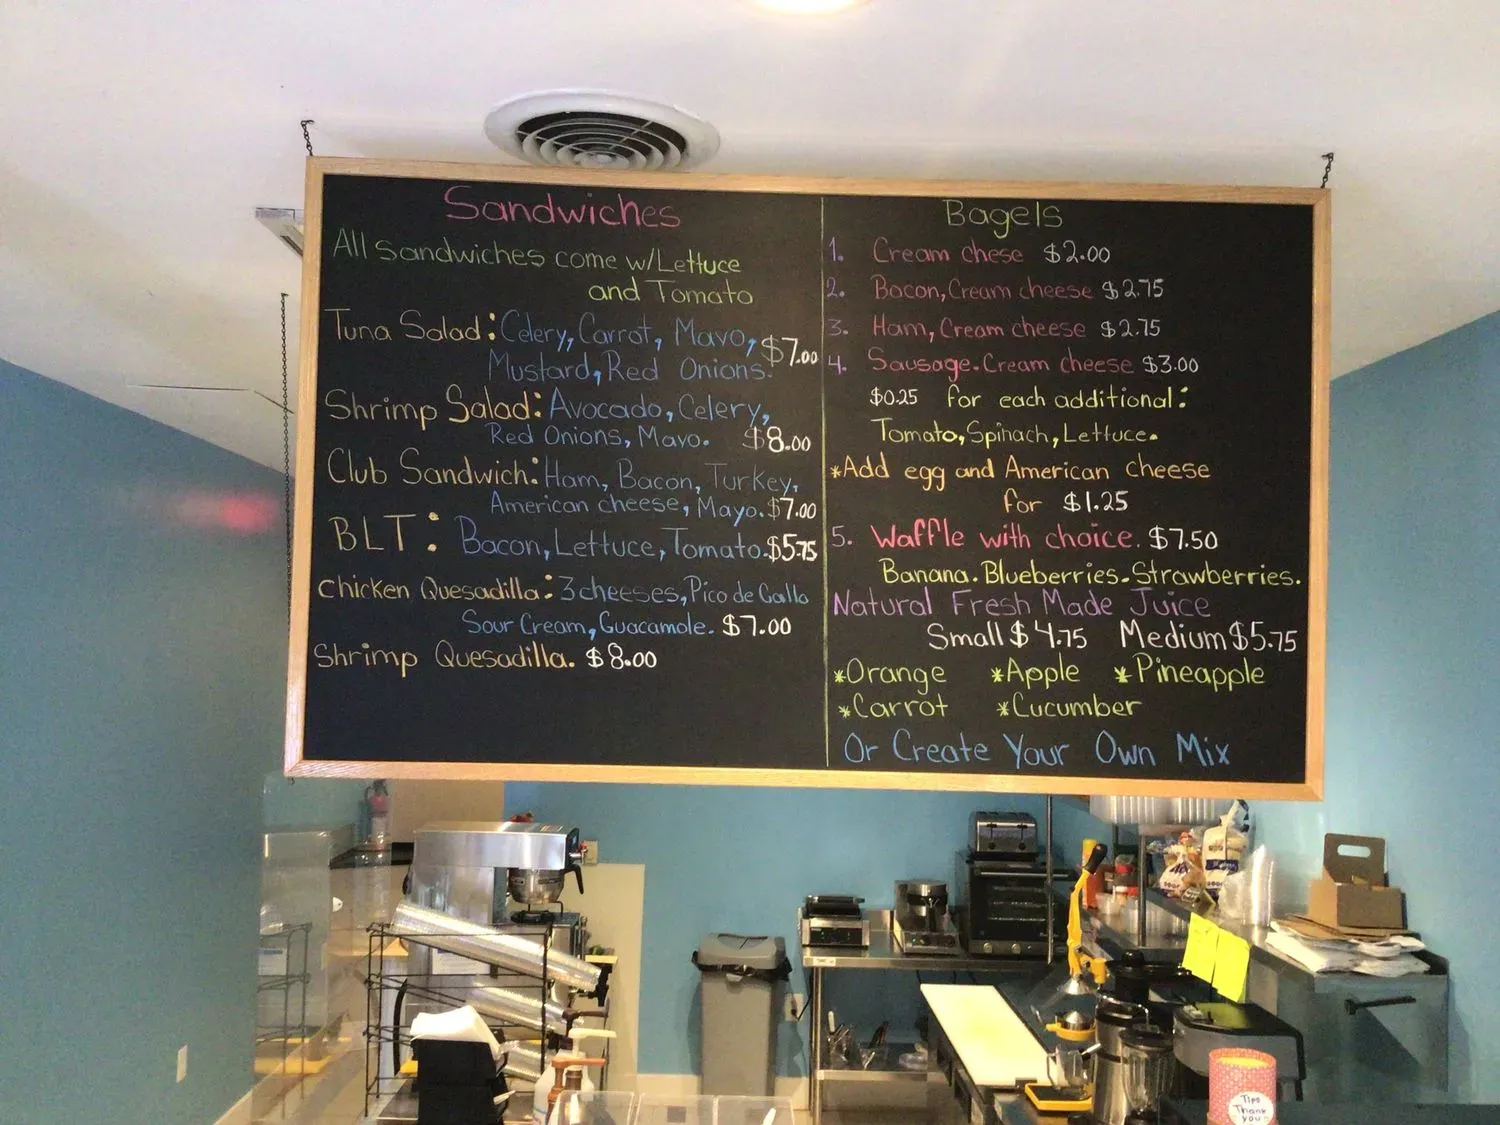 Sandwiches
All Sandwiches come w/Lettuce
and Tomato
Tuna Salad: Celery, Carrot, Mayo, $7.00
Mustard, Red Onions.
Shrimp Salad: Avocado, Celery,
Red Onions, Mayo. $8.00
Club Sandwich: Ham, Bacon, Turkey,
American cheese, Mayo. $7.00
BLT: Bacon, Lettuce, Tomato. $5.75
Chicken Quesadilla: 3 cheeses, Pico de Gallo
Sour Cream, Guacamole. $7.00
Shrimp Quesadilla. $8.00
Bagels
1. Cream chese $2.00
2. Bacon, Cream cheese $2.75
3. Ham, Cream cheese $2.75
4. Sausage. Cream cheese $3.00
$0.25 for each additional:
Tomato, Spinach, Lettuce.
*Add egg and American cheese
for $1.25
5. Waffle with choice. $7.50
Banana. Blueberries. Strawberries.
Natural Fresh Made Juice
Small $4.75 Medium $5.75
*Orange *Apple *Pineapple
*Carrot *Cucumber
Or Create Your Own Mix
Tips
Thank
you